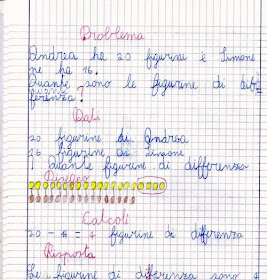 Problema
Andrea ha 20 figurine e Simone
ne ha 16.
Quante sono le figurine di dif-
ferenza?
Dati
20 figurine di Andrea
16 figurine di Simone
Quante figurine di differenza
Disegno
Calcoli
20 - 16 = 4 figurine di differenza
Risposta
Le figurine di differenza sono 4